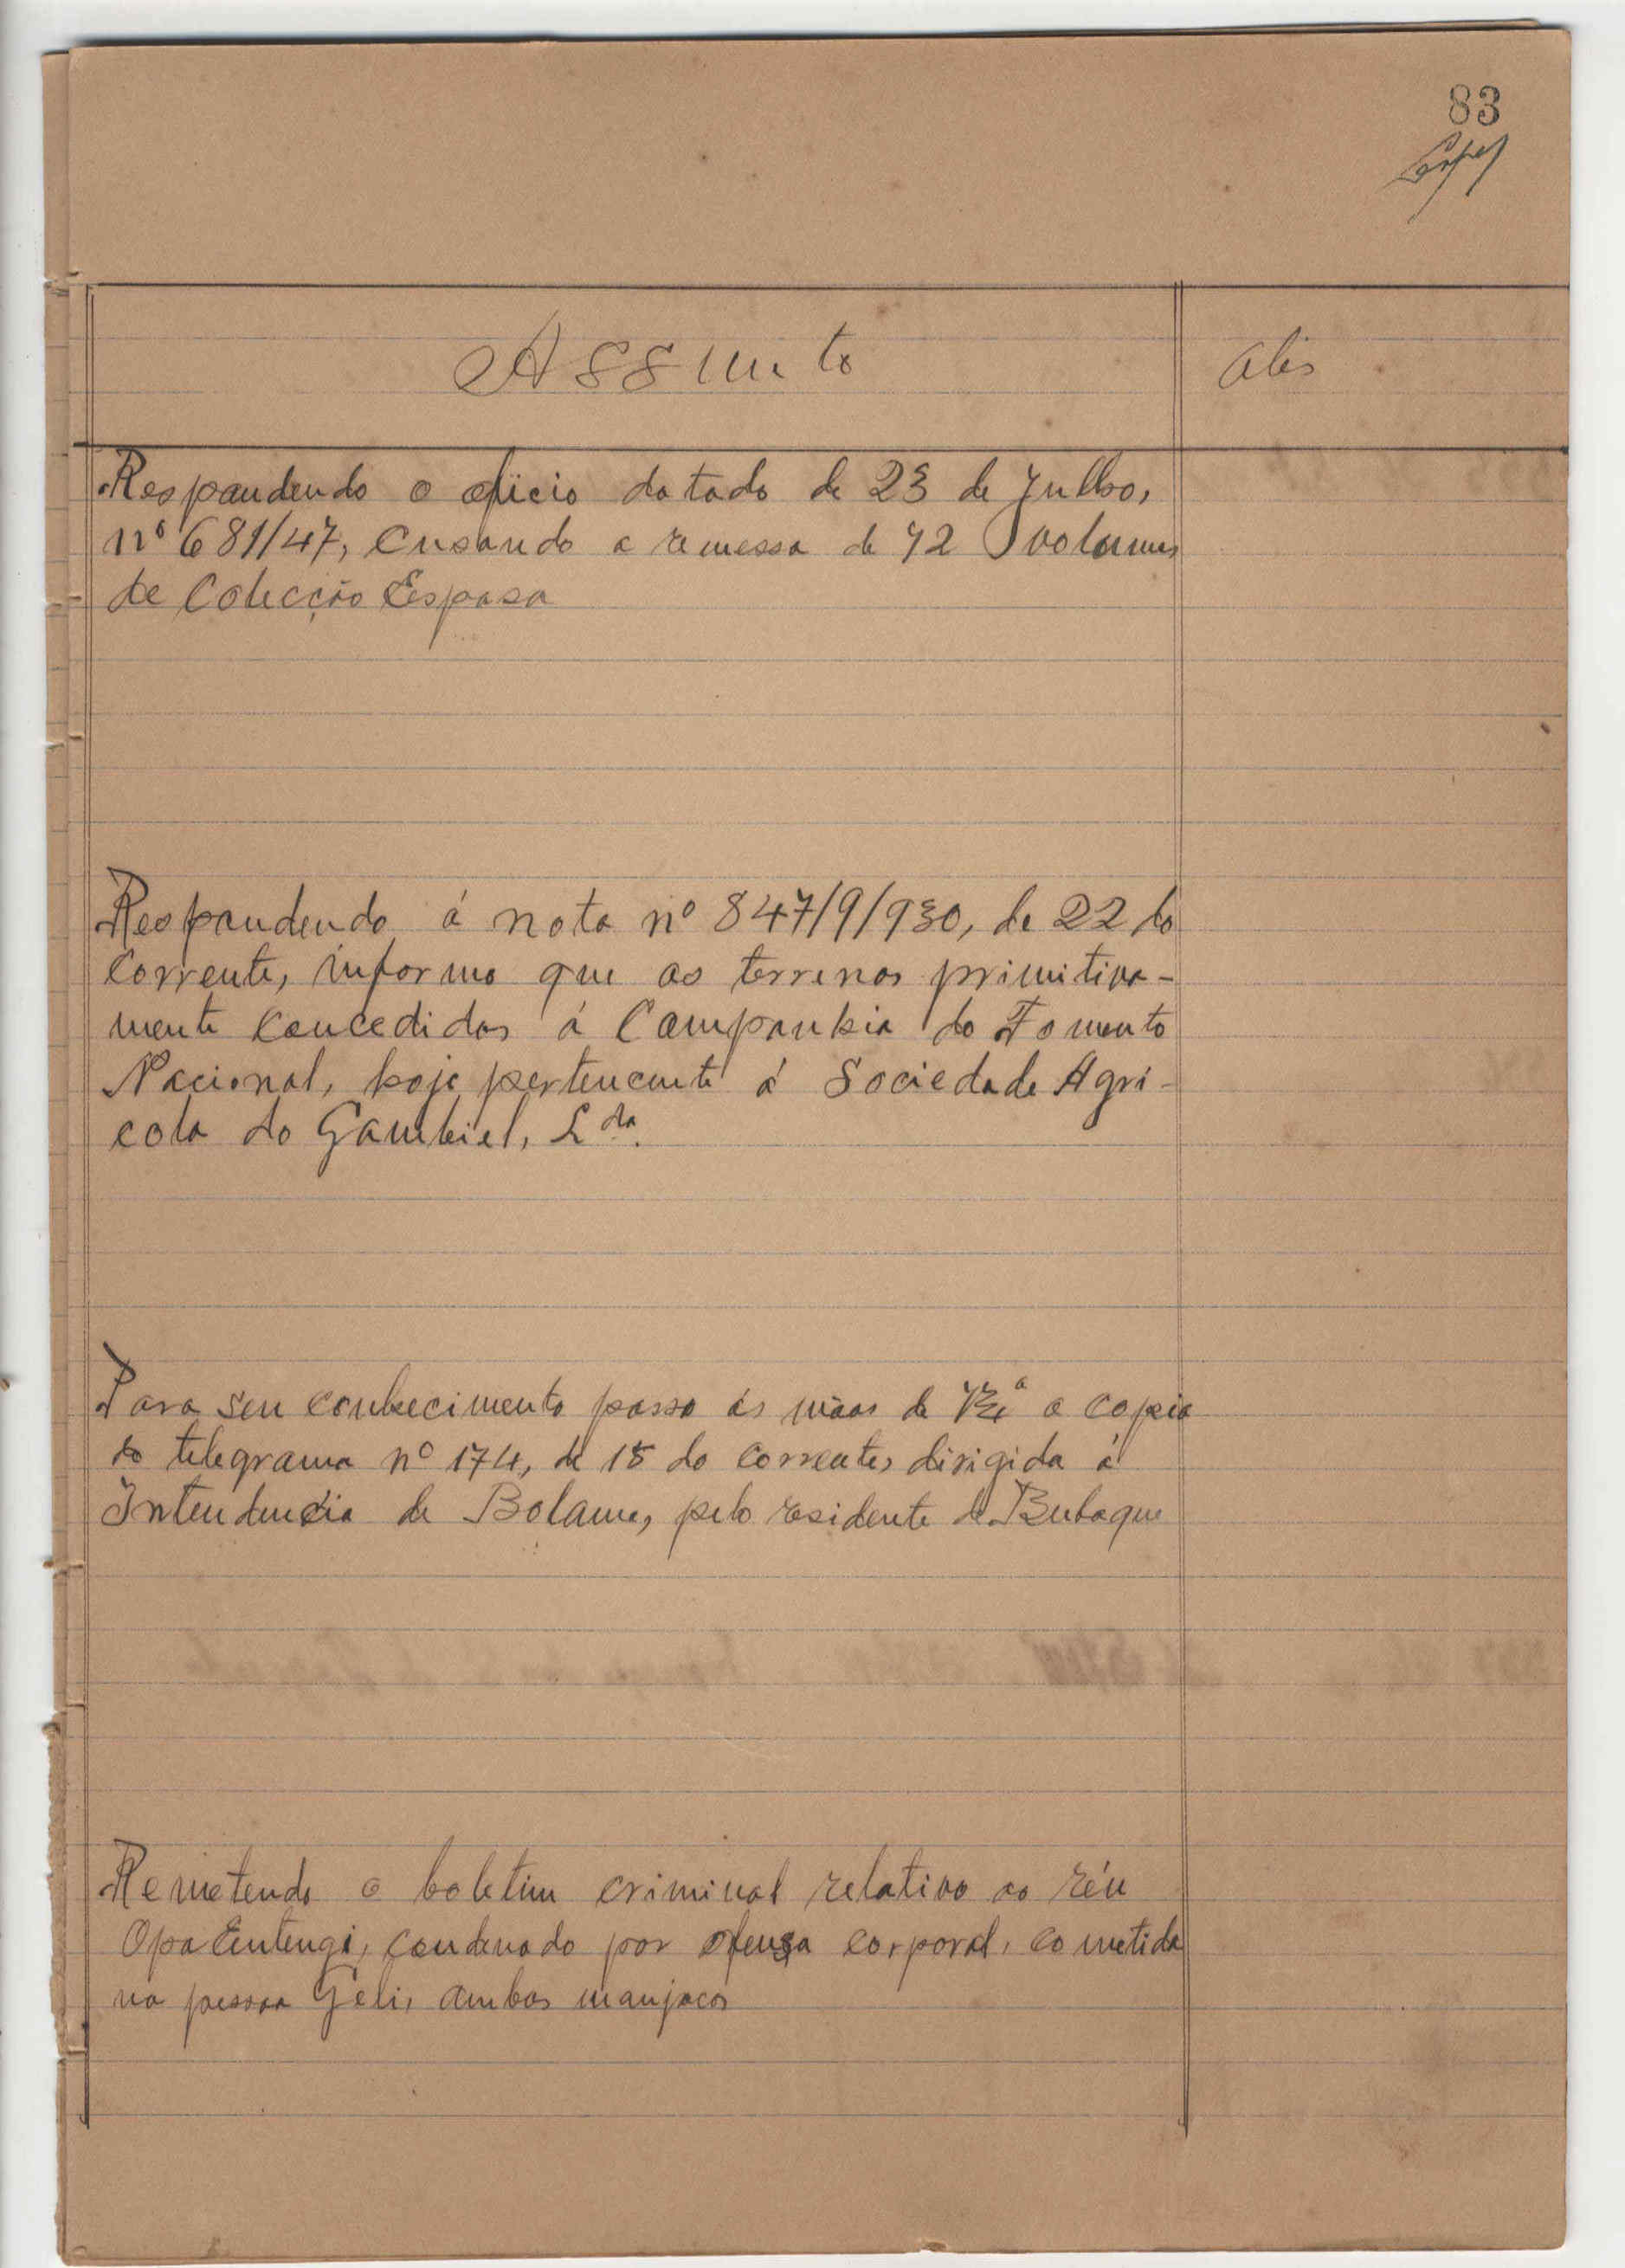 83
Assunto
Obs
Respondendo o oficio datado de 23 de Julho,
nº 681/47, cusando a remessa de 72 volumes
de Colecção Espasa
Respondendo á nota nº 847/9/930, de 22 do
corrente, informo que os terrenos primitiva-
mente concedidos á Companhia do Fomento
Nacional, hoje pertencente á Sociedade Agri-
cola do Gambiel, Lda.
Para seu conhecimento passo ás mãos de a copia
do telegrama nº 174, de 18 do corrente, dirigida á
Intendencia de Bolama, pelo residente de Bubaque
Remetendo o boletim criminal relativo ao réu
Opa Entengi, condenado por ofensa corporal, cometida
na pessoa Geli, ambos manjacos